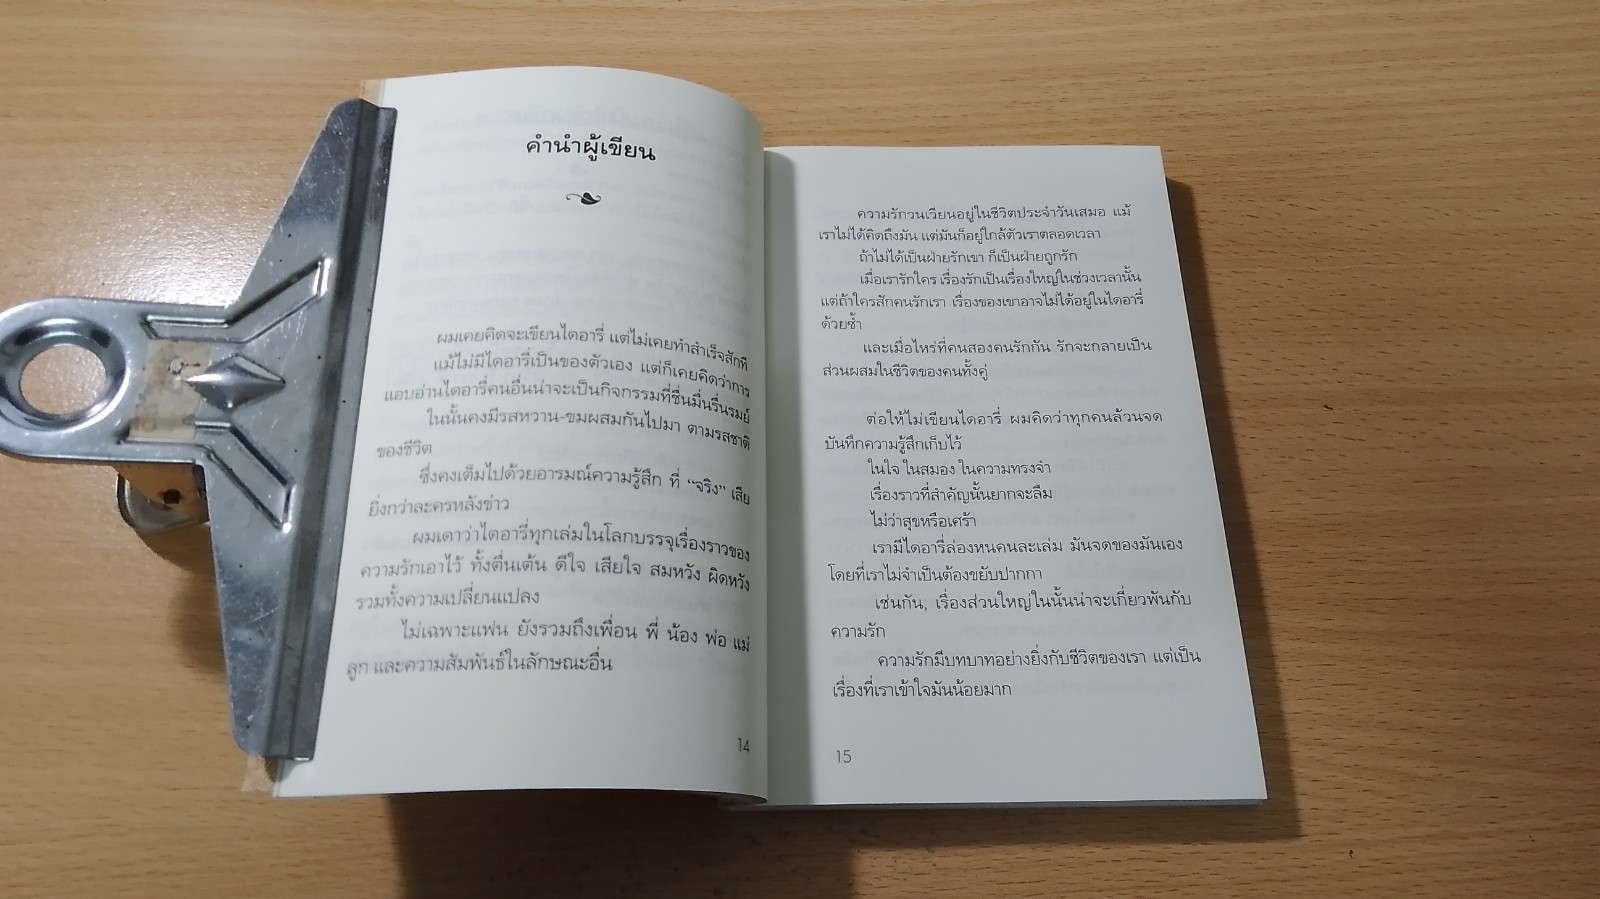 คำนำผู้เขียน
ผมเคยคิดจะเขียนไดอารี่ แต่ไม่เคยทำสำเร็จสักที
แม้ไม่มีไดอารี่เป็นของตัวเอง แต่ก็เคยคิดว่าการ
แอบอ่านไดอารี่คนอื่นน่าจะเป็นกิจกรรมที่ชื่นมื่นรื่นรมย์
ในนั้นคงมีรสหวาน-ขมผสมกันไปมา ตามรสชาติ
ของชีวิต
ซึ่งคงเต็มไปด้วยอารมณ์ความรู้สึก ที่ “จริง” เสีย
ยิ่งกว่าละครหลังข่าว
ผมเดาว่าไดอารี่ทุกเล่มในโลกบรรจุเรื่องราวของ
ความรักเอาไว้ ทั้งตื่นเต้น ดีใจ เสียใจ สมหวัง ผิดหวัง
รวมทั้งความเปลี่ยนแปลง
ไม่เฉพาะแฟน ยังรวมถึงเพื่อน พี่ น้อง พ่อ แม่
ลูก และความสัมพันธ์ในลักษณะอื่น
14
ความรักวนเวียนอยู่ในชีวิตประจำวันเสมอ แม้
เราไม่ได้คิดถึงมัน แต่มันก็อยู่ใกล้ตัวเราตลอดเวลา
ถ้าไม่ได้เป็นฝ่ายรักเขา ก็เป็นฝ่ายถูกรัก
เมื่อเรารักใคร เรื่องรักเป็นเรื่องใหญ่ในช่วงเวลานั้น
แต่ถ้าใครสักคนรักเรา เรื่องของเขาอาจไม่ได้อยู่ในไดอารี่
ด้วยซ้ำ
และเมื่อไหร่ที่คนสองคนรักกัน รักจะกลายเป็น
ส่วนผสมในชีวิตของคนทั้งคู่
ต่อให้ไม่เขียนไดอารี่ ผมคิดว่าทุกคนล้วนจด
บันทึกความรู้สึกเก็บไว้
ในใจ ในสมอง ในความทรงจำ
เรื่องราวที่สำคัญนั้นยากจะลืม
ไม่ว่าสุขหรือเศร้า
เรามีไดอารี่ล่องหนคนละเล่ม มันจดของมันเอง
โดยที่เราไม่จำเป็นต้องขยับปากกา
เช่นกัน, เรื่องส่วนใหญ่ในนั้นน่าจะเกี่ยวพันกับ
ความรัก
ความรักมีบทบาทอย่างยิ่งกับชีวิตของเรา แต่เป็น
เรื่องที่เราเข้าใจมันน้อยมาก
15